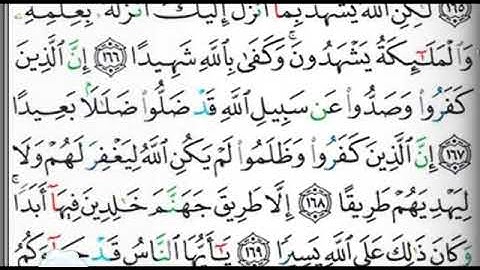 ١٦٥ لَّٰكِنِ اللَّهُ يَشْهَدُ بِمَا أَنزَلَ إِلَيْكَ أَنزَلَهُ بِعِلْمِهِ
وَالْمَلَائِكَةُ يَشْهَدُونَ وَكَفَىٰ بِاللَّهِ شَهِيدًا ١٦٦ إِنَّ الَّذِينَ
كَفَرُوا وَصَدُّوا عَن سَبِيلِ اللَّهِ قَدْ ضَلُّوا ضَلَالًا بَعِيدًا
١٦٧ إِنَّ الَّذِينَ كَفَرُوا وَظَلَمُوا لَمْ يَكُنِ اللَّهُ لِيَغْفِرَ لَهُمْ وَلَا
لِيَهْدِيَهُمْ طَرِيقًا ١٦٨ إِلَّا طَرِيقَ جَهَنَّمَ خَالِدِينَ فِيهَا أَبَدًا
وَكَانَ ذَٰلِكَ عَلَى اللَّهِ يَسِيرًا ١٦٩ يَا أَيُّهَا النَّاسُ قَدْ جَاءَكُمُ